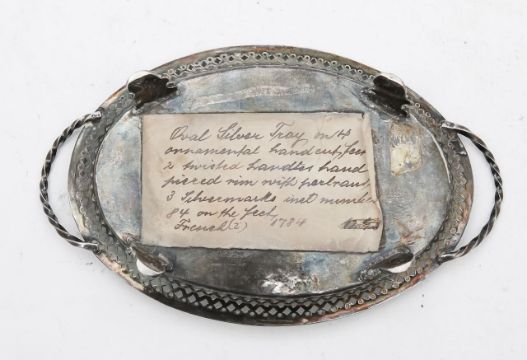 Oval Silver Tray, on 4
ornamental hand cut, feet
2 twisted handles hand
pierced rim with pertrant,
3 Silvermarks incl number
84 on the feet,
French (?) 1784